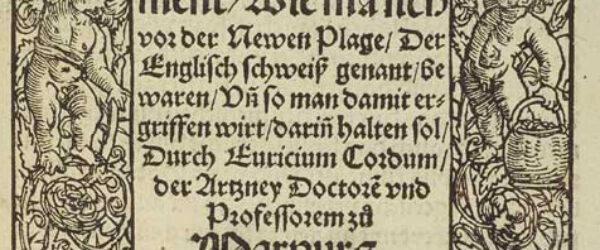 ment/ wie man sich
vor der Newen Plage/ Der
Englisch schweiß genant/ be
waren/ Vñ so man damit er⸗
griffen wirt/ dariñ halten sol/
Durch Euricium Cordum/
der Artzney Doctorẽ vnd
Professorem zů
Marpurg